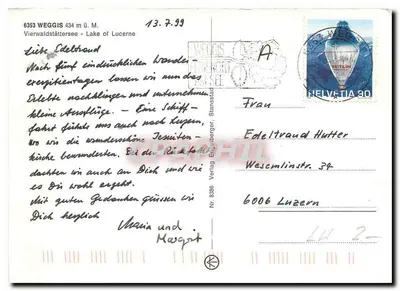 6353 WEGGIS 434 m ü. M.
Vierwaldstättersee - Lake of Lucerne
13.7.99
Liebe Edeltraud
Nach fünf eindrücklichen Wander-
exerzitientagen lassen wir nun das
Erlebte nachklingen und unternehmen
kleine Ausflüge. – Eine Schiff-
fahrt führte uns auch nach Luzern,
wo wir die wunderschöne Jesuiten-
kirche bewunderten. Bei der Rückfahrt
dachten wir auch an Dich und wie
es Dir wohl ergeht.
Mit guten Gedanken grüssen wir
Dich herzlich
Maria und
Margrit
Nr. 8386 Verlag Engelberger, Stansstad
A
HELVETIA 90
Frau
Edeltraud Hutter
Wesemlinstr. 34
6006 Luzern
LU 2-